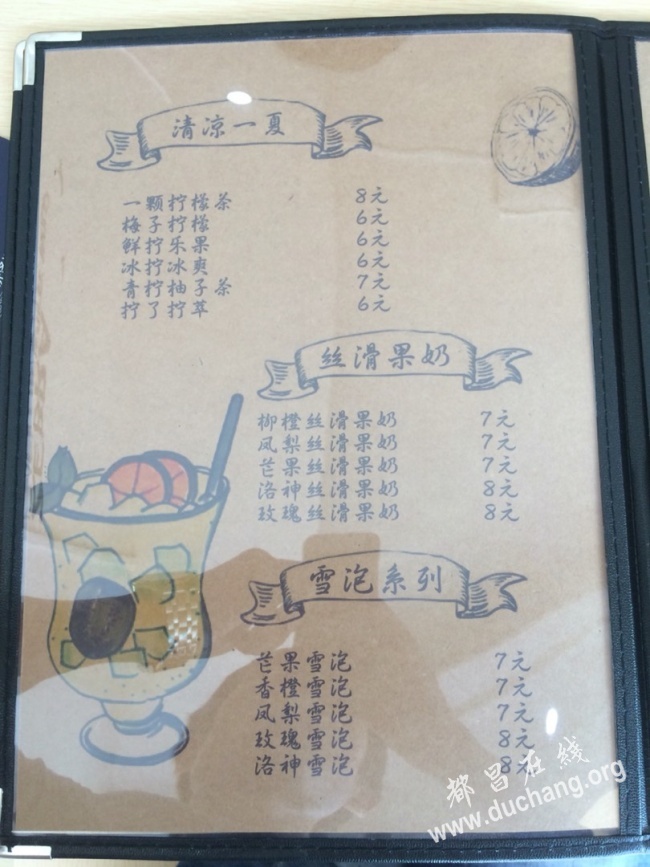 清凉一夏
一颗柠檬茶 8元
梅子柠檬 6元
鲜柠乐果 6元
冰柠冰爽 6元
青柠柚子茶 7元
柠了柠萃 6元
丝滑果奶
柳橙丝滑果奶 7元
凤梨丝滑果奶 7元
芒果丝滑果奶 7元
洛神丝滑果奶 8元
玫瑰丝滑果奶 8元
雪泡系列
芒果雪泡 7元
香橙雪泡 7元
凤梨雪泡 7元
玫瑰雪泡 8元
洛神雪泡 8元
都昌在线
www.duchang.org